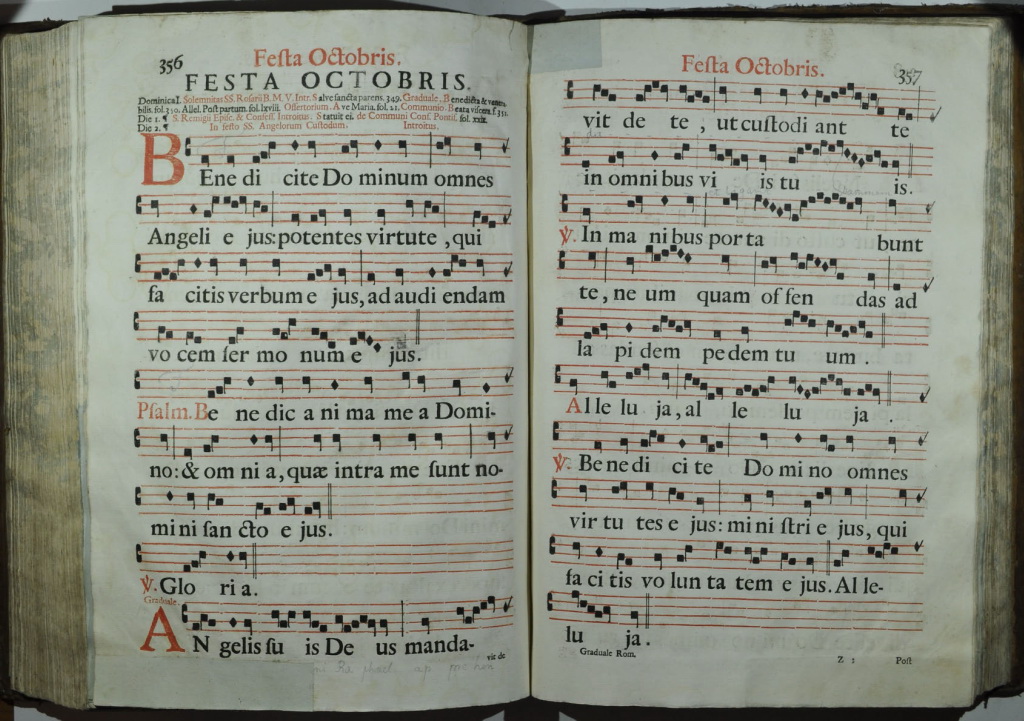 356
Festa Octobris.
FESTA OCTOBRIS.
Dominica I. Solemnitas SS. Rosarii B. M. V. Intr. Salve sancta parens. 349. Graduale. Benedicta & venera-
bilis. fol. 310. Allel. Post partum. fol. lxviii. Offertorium. Ave Maria. fol. 21. Communio. Beata viscera. f. 351.
Die 1. ¶ S. Remigii Episc. & Confess. Introitus. Statuit ei. de Communi Conf. Pontif. fol. xxix.
Die 2. ¶ In festo SS. Angelorum Custodum. Introitus.
BEne di cite Do minum omnes
Angeli e jus: potentes virtute, qui
fa citis verbum e jus, ad audi endam
vo cem ser mo num e jus.
Psalm. Be ne dic a ni ma me a Domi-
no: & om ni a, quæ intra me sunt no-
mi ni san cto e jus.
℣. Glo ri a.
Graduale.
AN gelis su is De us manda-
vit de
357
Festa Octobris.
vit de te, ut custodi ant te
in omni bus vi is tu is.
℣. In ma ni bus por ta bunt
te, ne um quam of fen das ad
la pi dem pe dem tu um.
Al le lu ja, al le lu ja.
℣. Be ne di ci te Do mi no omnes
vir tu tes e jus: mi ni stri e jus, qui
fa ci tis vo lun ta tem e jus. Al le-
lu ja.
Graduale Rom.
Z 2
Post